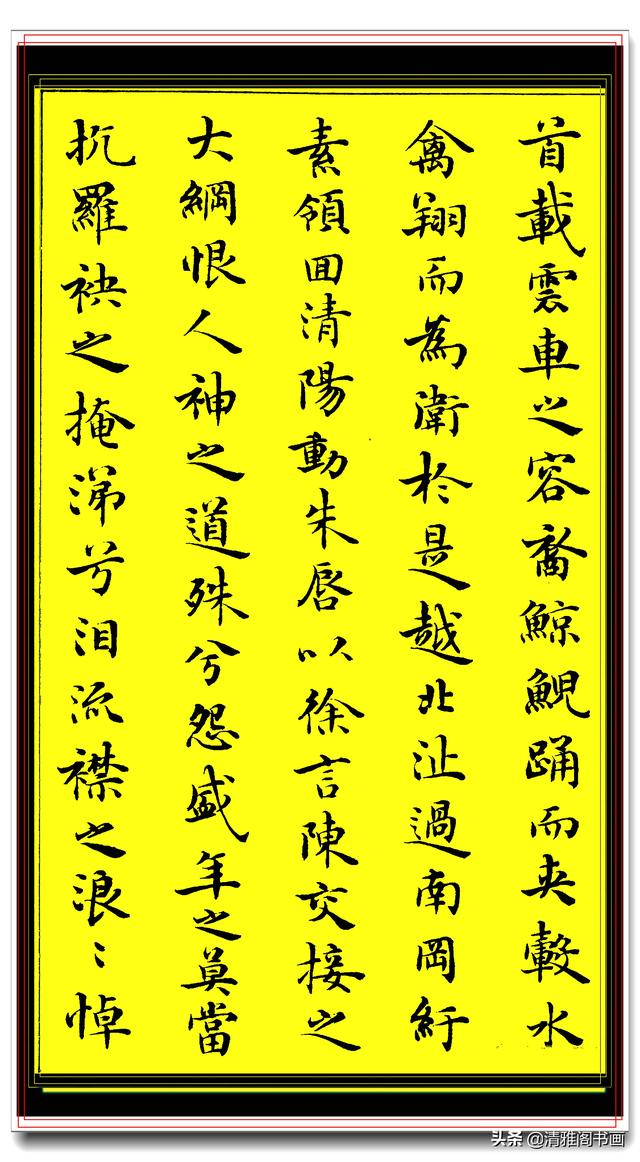 首載雲車之容裔鯨鯢踊而夾轂水
禽翔而為衛於是越北沚過南岡紆
素領囬清陽動朱唇以徐言陳交接之
大綱恨人神之道殊兮怨盛年之莫當
抗羅袂之掩涕兮泪流襟之浪〻悼
头条 @清雅阁书画